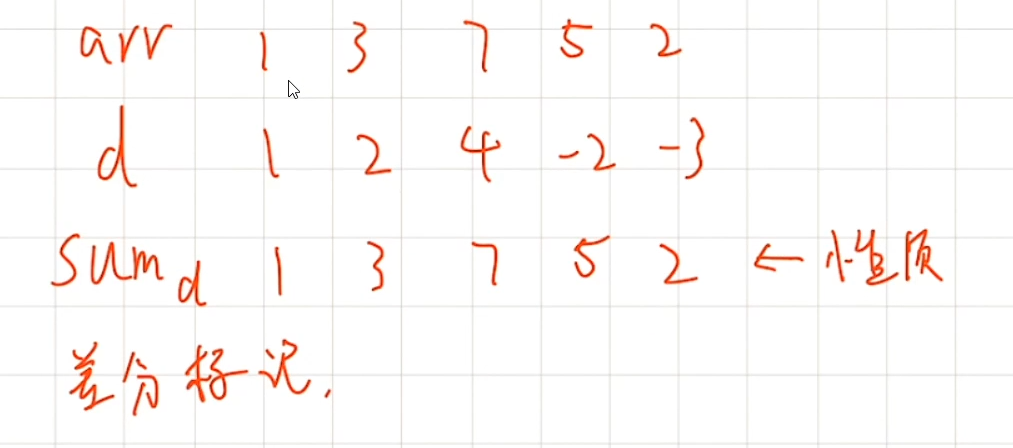 arr 1 3 7 5 2
d 1 2 4 -2 -3
sum_d 1 3 7 5 2 ← 性质
差分标记.